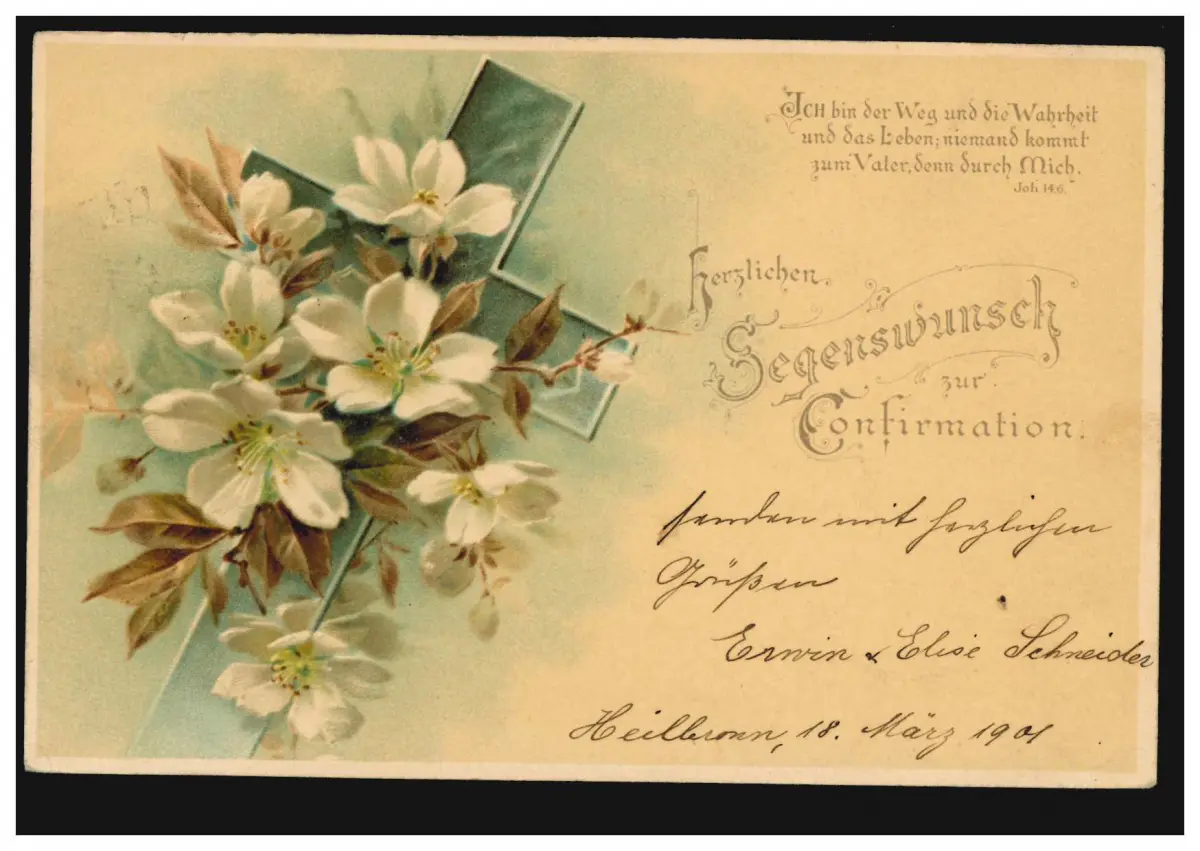 ICH bin der Weg und die Wahrheit
und das Leben; niemand kommt
zum Vater, denn durch Mich.
Joh. 14.6.
Herzlichen
Segenswunsch
zur
Confirmation.
senden mit herzlichen
Grüßen
Erwin & Elise Schneider
Heilbronn, 18. März 1901